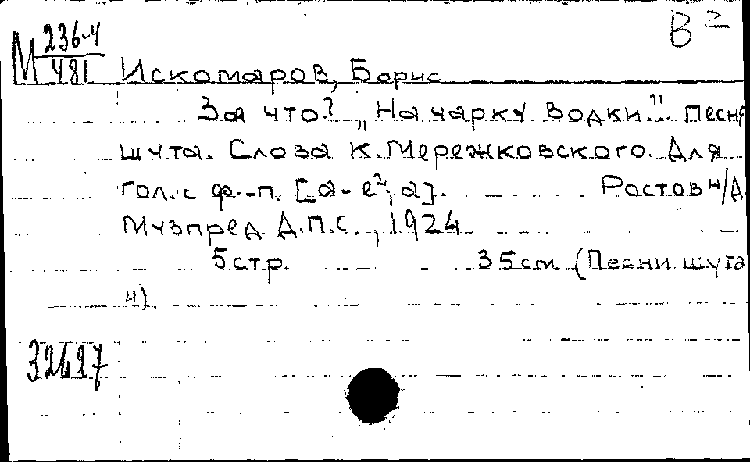 В 2
М 236-4
481
Искомаров, Борис
За что? „На чарку водки". Песня
шута. Слова К. Мережковского. Для
гол. с ф.-п. [a-e², a]. Ростов н/Д.
Музпред Д.П.С., 1924
5 стр. 35 см (Песни шута
4).
32427